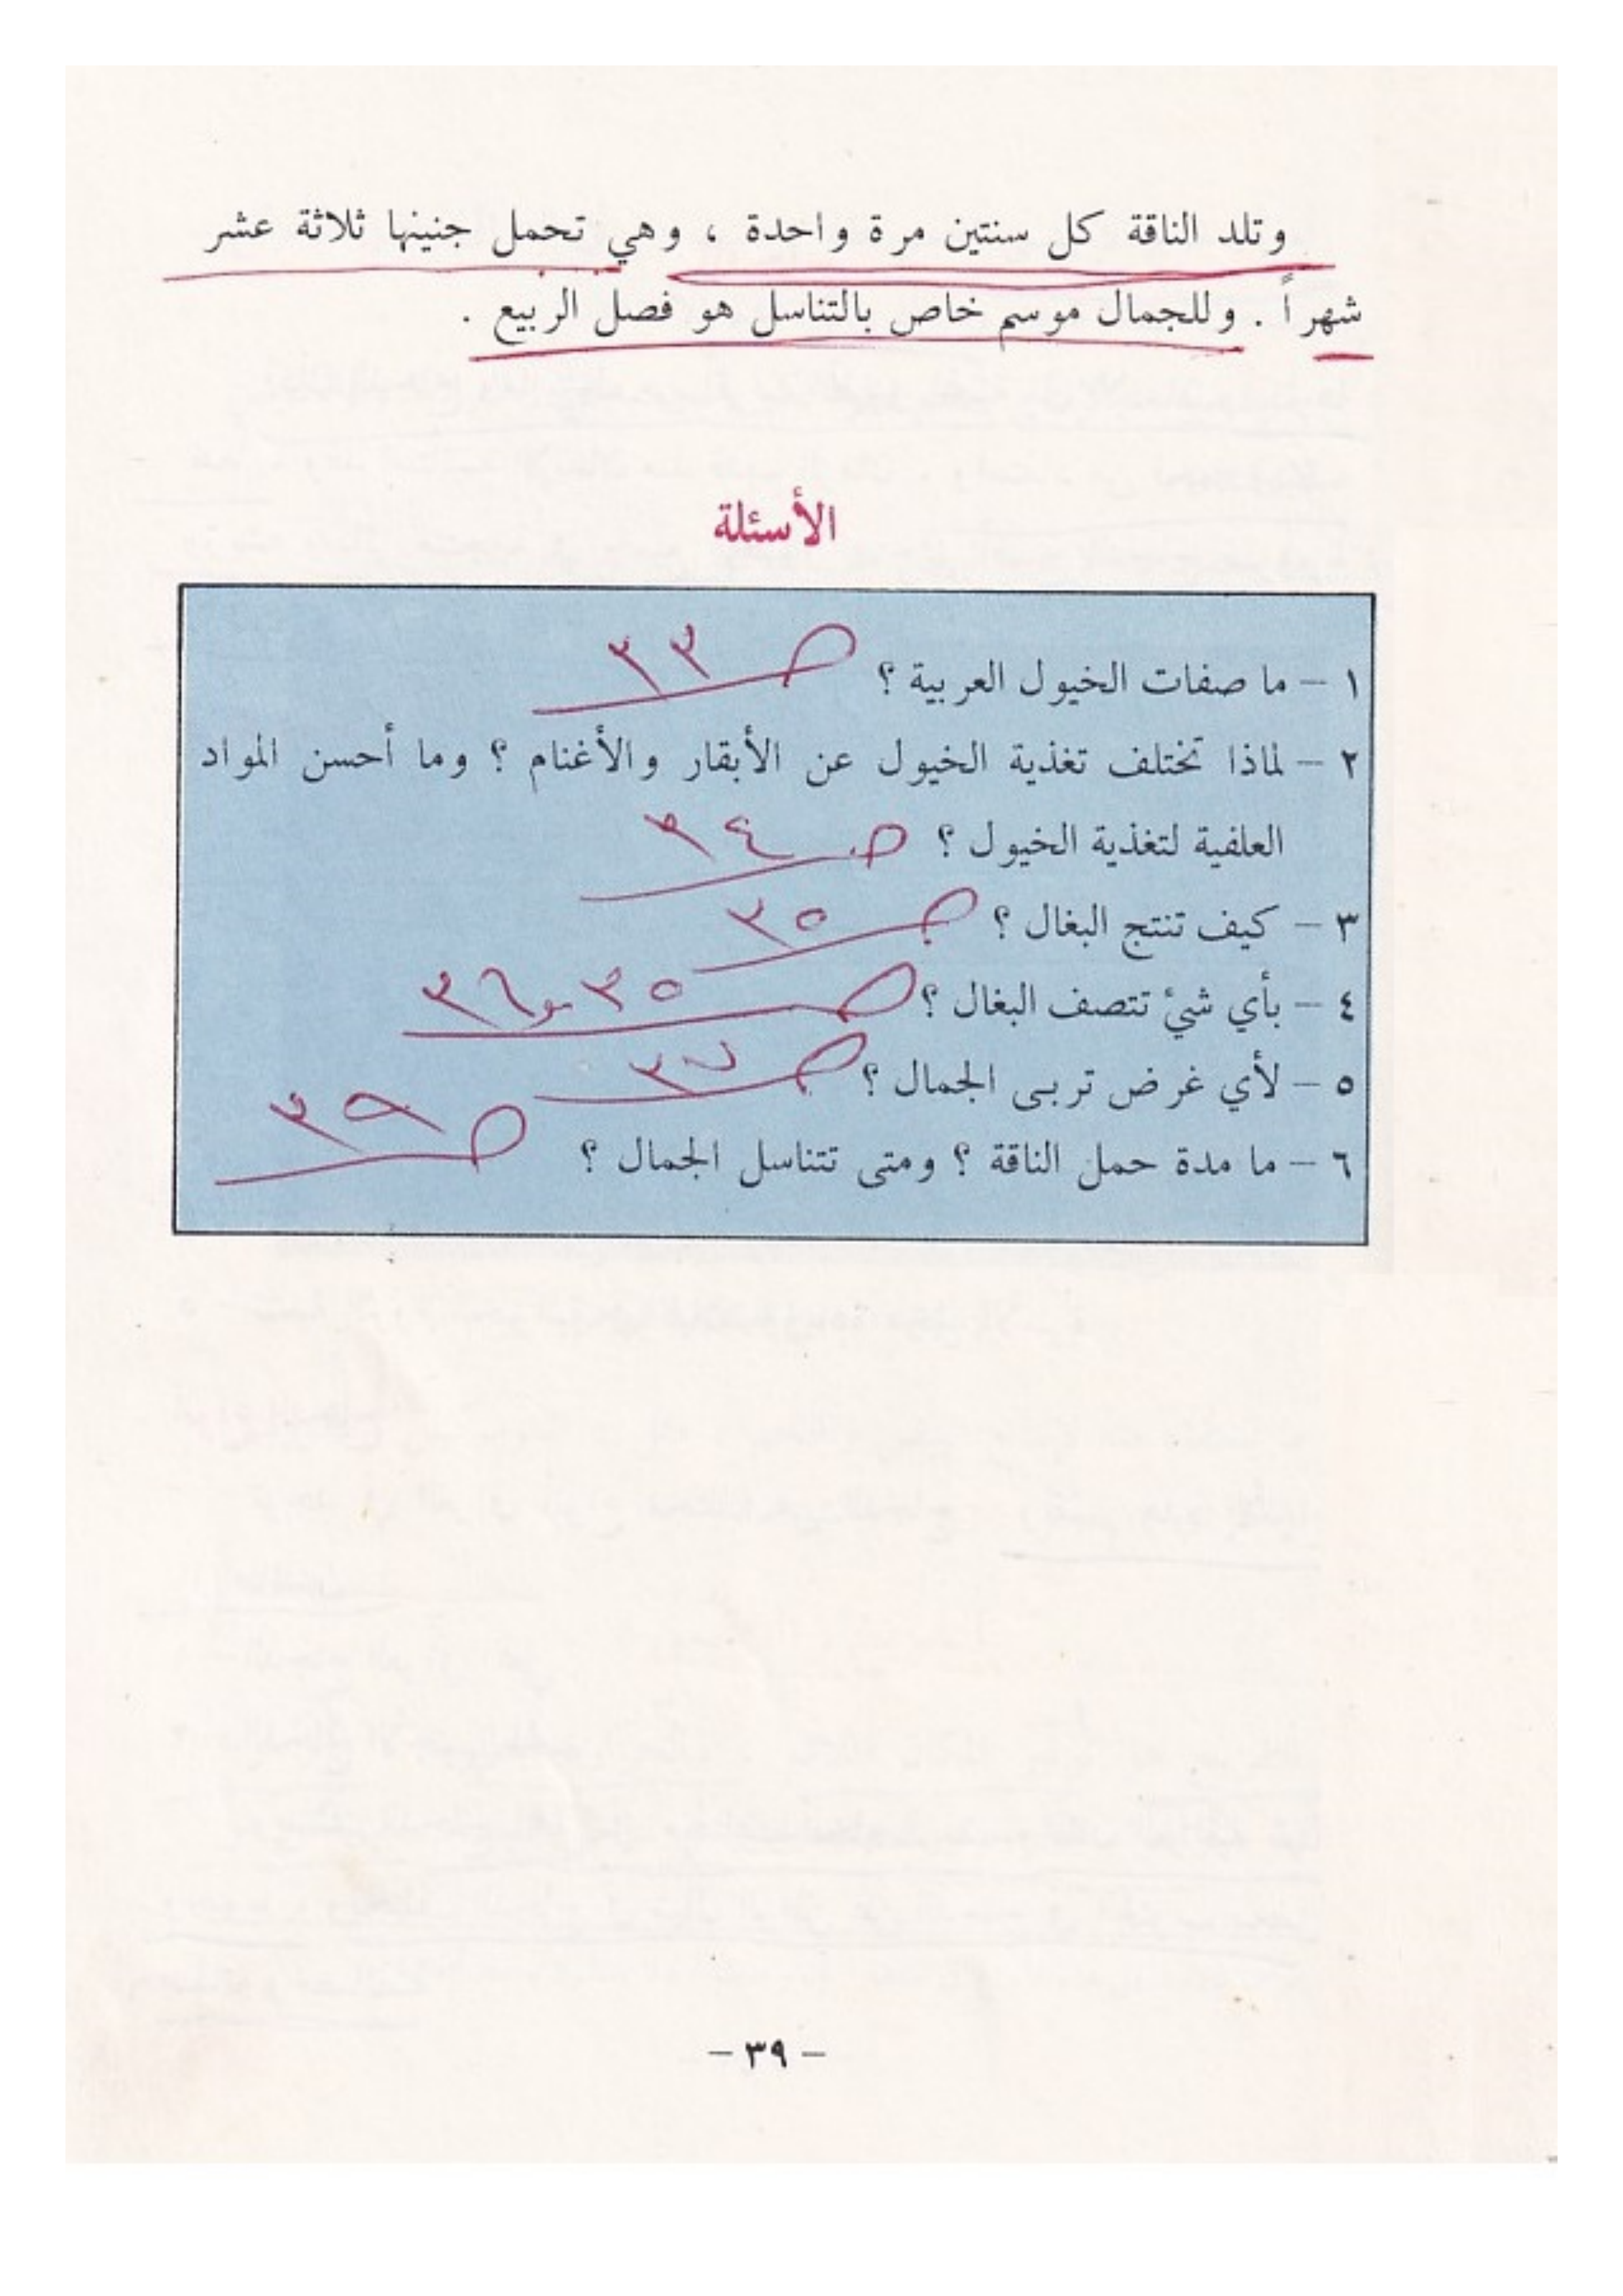 وتلد الناقة كل سنتين مرة واحدة ، وهي تحمل جنينها ثلاثة عشر
شهراً . وللجمال موسم خاص بالتناسل هو فصل الربيع .
الأسئلة
١ – ما صفات الخيول العربية ؟ ص ٣٣
٢ – لماذا تختلف تغذية الخيول عن الأبقار والأغنام ؟ وما أحسن المواد
العلفية لتغذية الخيول ؟ ص ٣٤
٣ – كيف تنتج البغال ؟ ص ٣٥
٤ – بأي شيء تتصف البغال ؟ ص ٣٥ و ٣٦
٥ – لأي غرض تربى الجمال ؟ ص
٦ – ما مدة حمل الناقة ؟ ومتى تتناسل الجمال ؟ ص ٣٩
– ٣٩ –